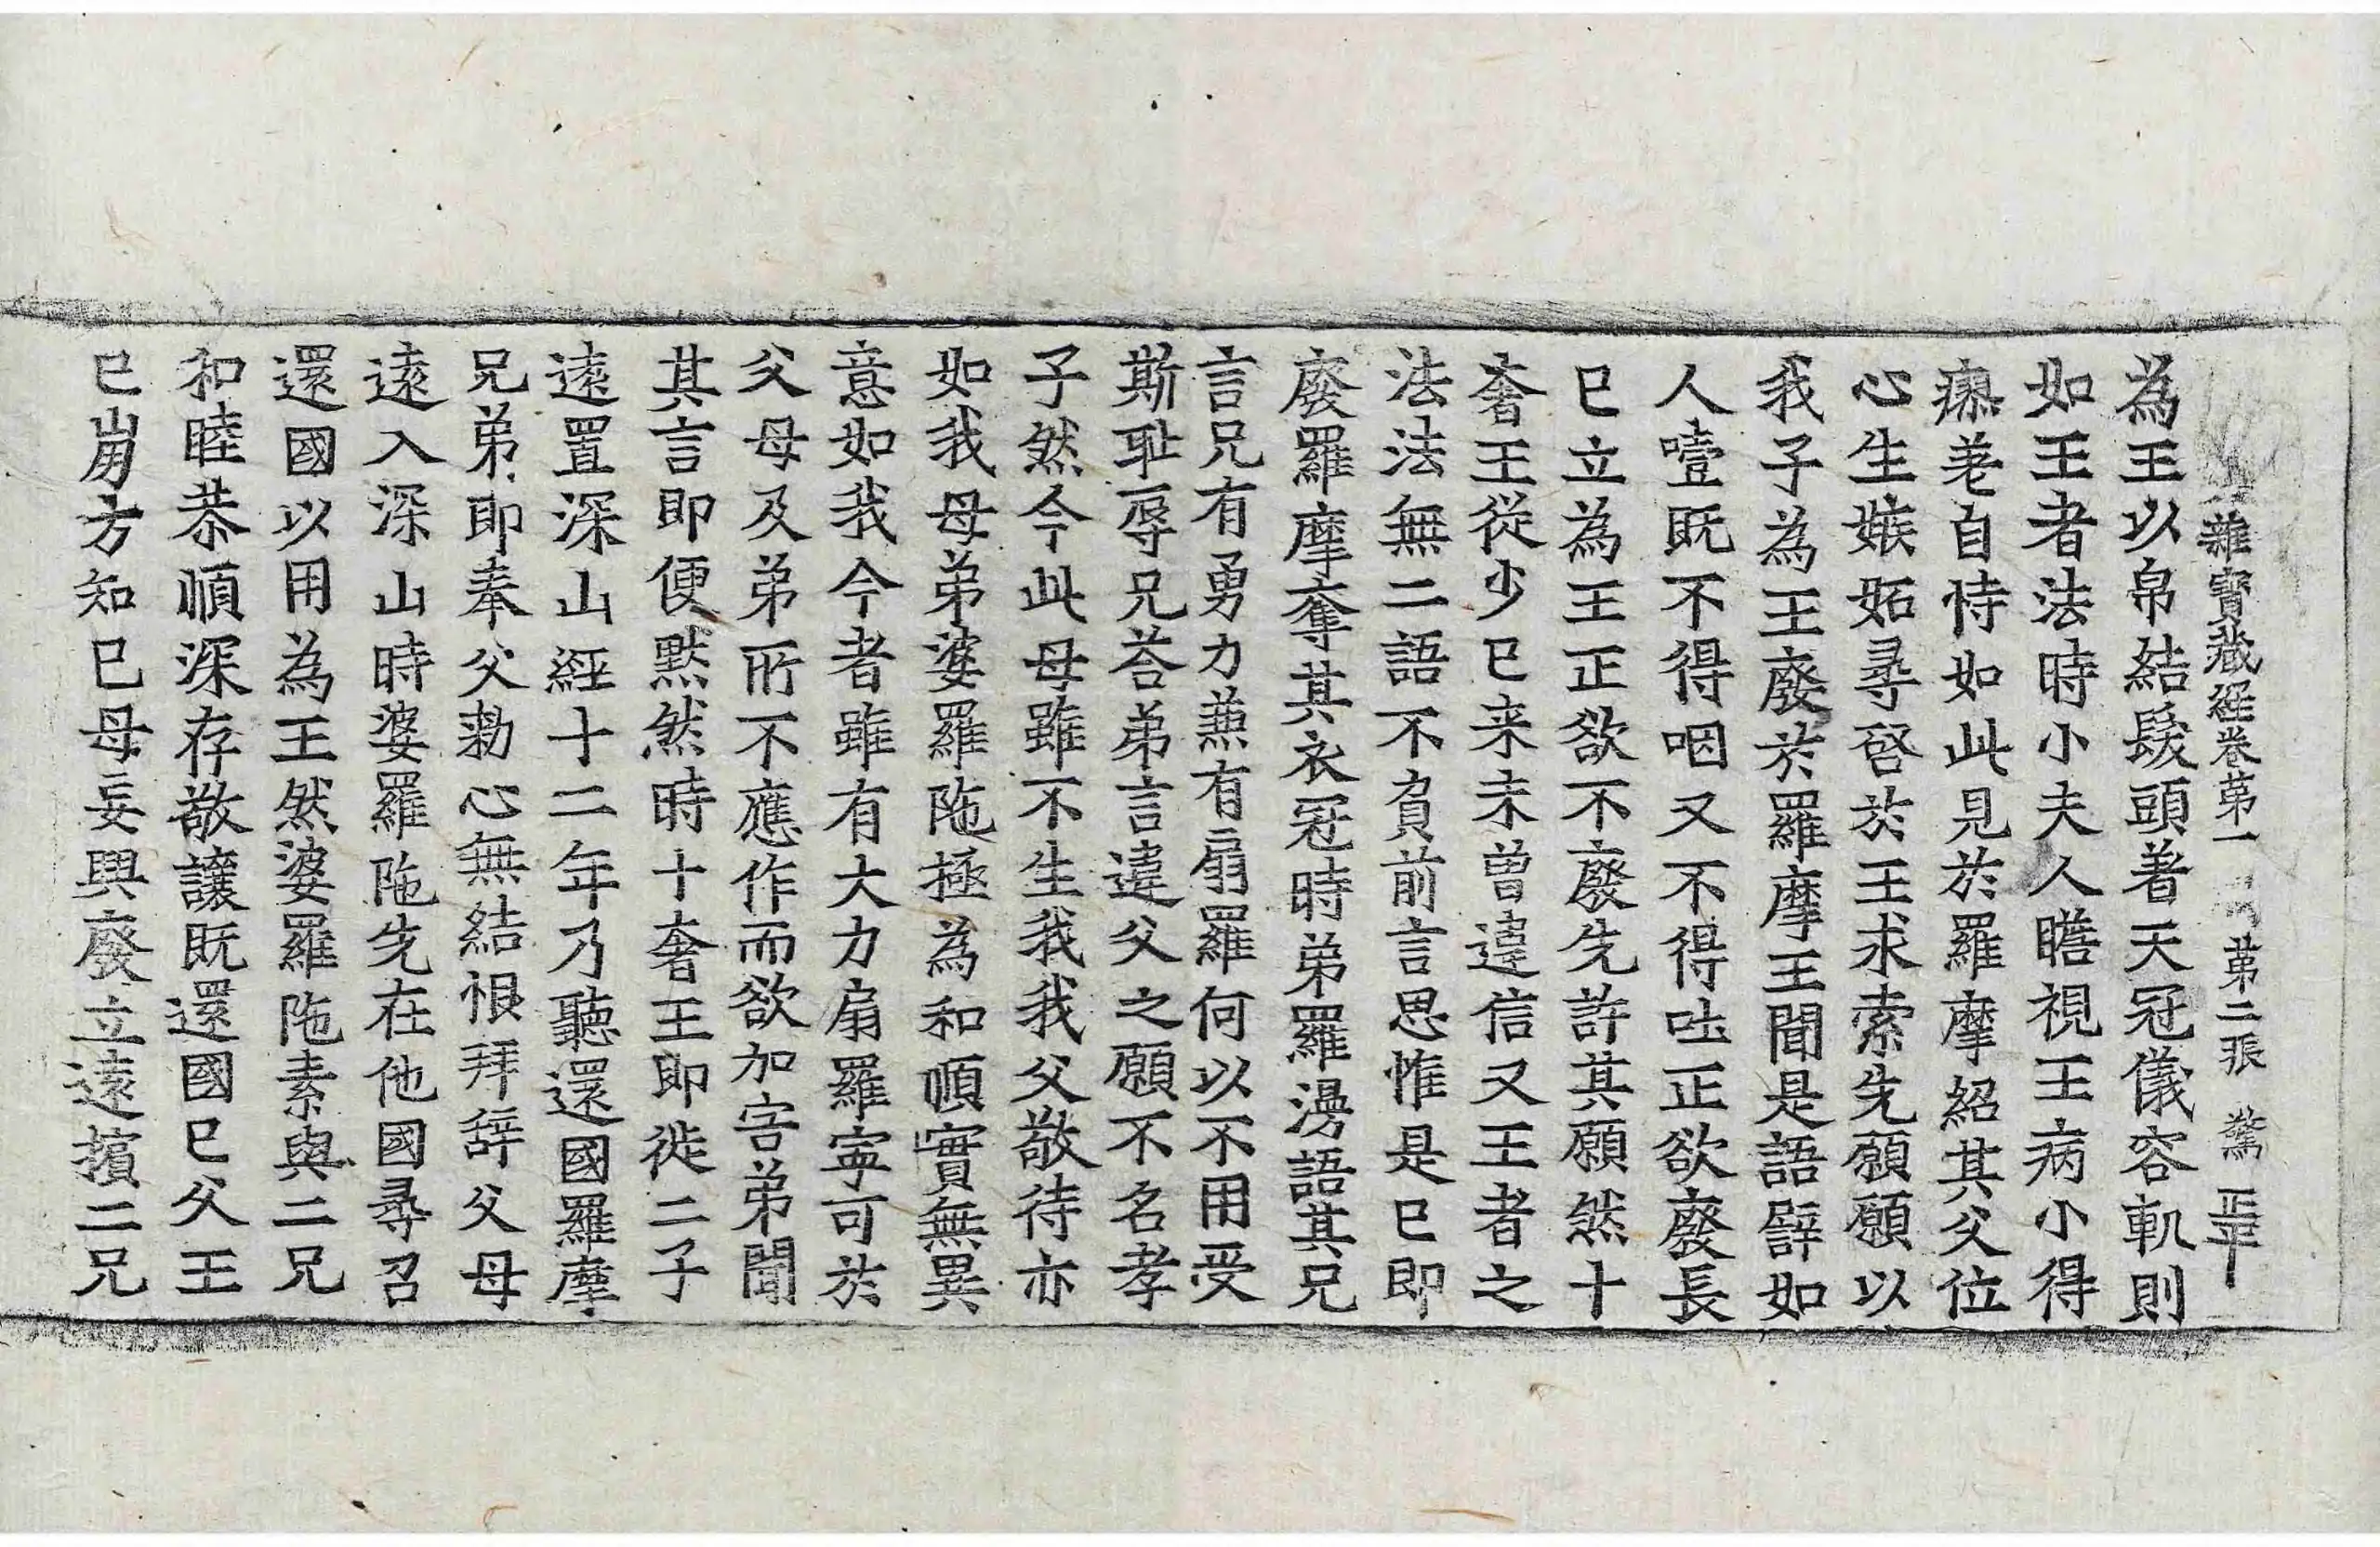 雜寶藏經卷第一 第二張 驚 正平
為王以帛結髮頭著天冠儀容軌則
如王者法時小夫人瞻視王病小得
瘳差自恃如此見於羅摩紹其父位
心生嫉妬尋啓於王求索先願願以
我子為王廢於羅摩王聞是語譬如
人噎既不得咽又不得吐正欲廢長
已立為王正欲不廢先許其願然十
奢王從少已来未曾違信又王者之
法法無二語不負前言思惟是已即
廢羅摩奪其衣冠時弟羅漫語其兄
言兄有勇力兼有扇羅何以不用受
斯耻辱兄荅弟言違父之願不名孝
子然今此母雖不生我我父敬待亦
如我母弟婆羅陁極為和順實無異
意如我今者雖有大力扇羅寧可於
父母及弟所不應作而欲加害弟聞
其言即便默然時十奢王即徙二子
遠置深山經十二年乃聽還國羅摩
兄弟即奉父勑心無結恨拜辭父母
遠入深山時婆羅陁先在他國尋召
還國以用為王然婆羅陁素與二兄
和睦恭順深存敬讓既還國已父王
已崩方知已母妄興廢立遠擯二兄